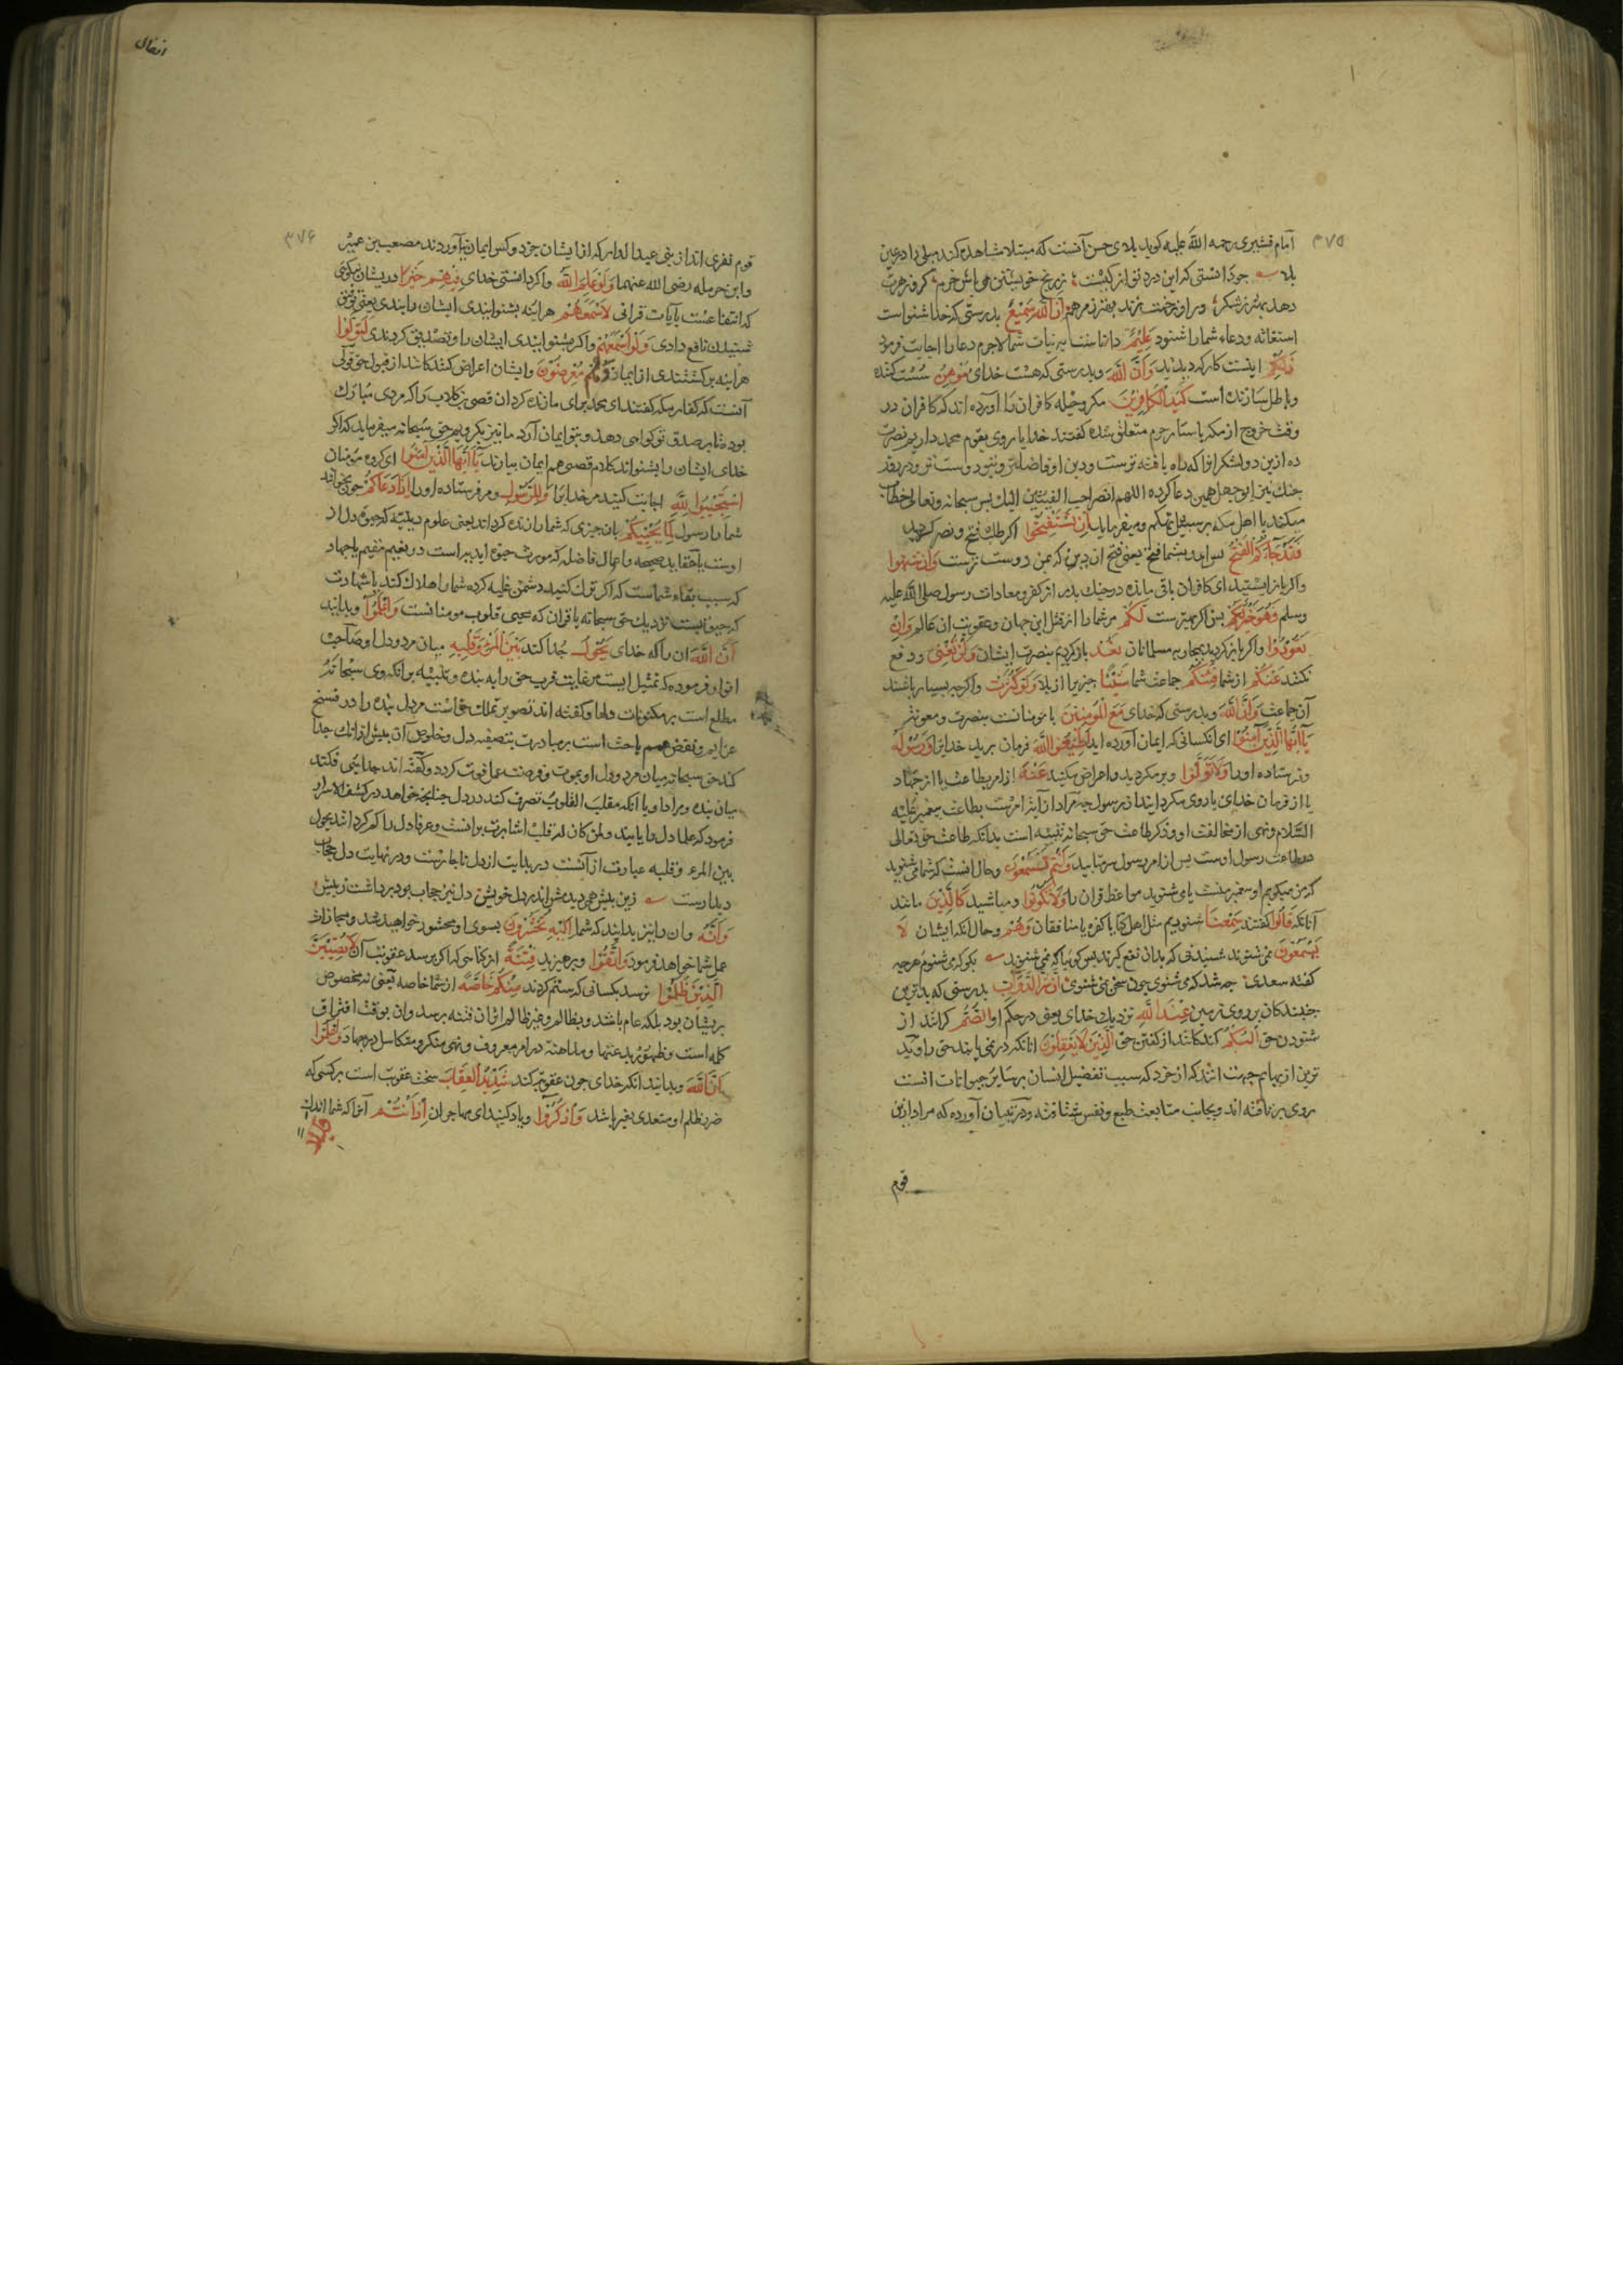 ۳۷۵
امام قشیری رحمه الله علیه کوید بلای حسن آنست که مبتلا مشاهده کند مبلی را در عین
بلا جو دانستی که این درد تو از کیست ز رنج خویشتن می باش خرم کر و زهرت
دهد بهتر ز شکر ور او زخمت زند بهتر ز مرهم ان الله سمیع بدرستی که خدا شنواست
استغاثه و دعاء شما را شنود علیم داناست بر نیات شما لاجرم دعا را اجابت فرمود
ذلکم اینست کار که دیدید وان الله و بدرستی که هست خدای موهن سست کننده
و باطل سازنده است کید الکافرین مکر و حیله کافران را آورده اند که کافران در
وقت خروج از مکه باستار حرم متعلق شده کفتند خدایا ما روی بقوم محمد داریم نصرت
ده ازین دو لشکر انرا که راه یافته ترست و دین او فاضلتر و نزد تو دوست تر و در روز
جنک نیز ابو جهل همین دعا کرده اللهم انصر احب الفیئتین الیک پس سبحانه و تعالی خطاب
میکند با اهل مکه بر سبیل تهکم و میفرماید ان تستفتحوا اکر طلب فتح و نصر کردید
فقد جاءکم الفتح پس آمد بشما فتح یعنی فتح ان دین که بمن دوست ترست وان تنتهوا
واکر باز ایستید ای کافران باقی مانده در جنک بدر از کفر و معادات رسول صلی الله علیه
وسلم فهو خیر لکم پس آن بهترست لکم مر شما را از قتل این جهان و عقوبت ان عالم وان
تعودوا واکر باز کردید بمحاربه مسلمانان نعد باز کردیم بنصرت ایشان ولن تغنی و دفع
نکند عنکم از شما فئتکم جماعت شما شیئا چیزی را از بلا ولو کثرت واکرچه بسیار باشند
آن جماعت وان الله و بدرستی که خدای مع المومنین با مومنانست بنصرت و معونت
یا ایها الذین آمنوا ای انکسانی که ایمان آورده اید اطیعوا الله فرمان برید خدایرا ورسوله
و فرستاده او را ولا تولوا و برمکردید و اعراض مکنید عنه از امر بطاعت یا از جهاد
یا از فرمان خدای یا روی مکردانید از رسول چه مراد از آیة امرست بطاعت پیغمبر علیه
السلام و نهی از مخالفت او و ذکر طاعت حق سبحانه تنبیه است بدانکه طاعت حق تعالی
در طاعت رسول اوست پس از امر رسول سر متابید وانتم تسمعون و حال انست که شما می شنوید
که من میکویم او پیغمبر منست یا می شنوید مواعظ قران را ولا تکونوا و مباشید کالذین مانند
آنانکه قالوا کفتند سمعنا شنودیم مثل اهل کتاب یا کفره یا منافقان وهم و حال انکه ایشان لا
یسمعون نمی شنوند شنیدنی که بدان نفع کیرند پس کوییا که نمی شنوند بکو که می شنوم هرچه
کفته سعدی چه شد که می شنوی چون سخن نمی شنوی ان شر الدواب بدرستی که بدترین
جنبندکان بر روی زمین عند الله نزدیک خدای یعنی در حکم او الصم کرانند از
شنودن حق البکم کنکانند از کفتن حق الذین لا یعقلون انانکه در نمی یابند حق را و بد
ترین از بهایم جهت انند که از خرد که سبب تفضیل انسان بر سایر حیوانات انست
روی بر تافته اند و بجانب متابعت طبع و نفس شتافته و در تبیان آورده که مراد ازین
قوم
انفال
۳۷۶
قوم نفری اند از بنی عبد الدار که از ایشان جز دو کس ایمان نیاوردند مصعب بن عمیر
وابن حرمله رضی الله عنهما ولو علم الله واکر دانستی خدای فیهم خیرا در ایشان نیکویی
که انتفاعست بآیات قرانی لاسمعهم هراینه بشنوانیدی ایشان را بندی یعنی توفیق
شنیدن نافع دادی ولو اسمعهم واکر بشنوانیدی ایشان را و تصدیق کردندی لتولوا
هراینه برکشتندی از ایمان وهم معرضون و ایشان اعراض کنندکانند از قبول حق قولی
آنست که کفار مکه کفتند ای محمد برای ما زنده کردان قصی بن کلاب را که مردی مبارک
بود تا بر صدق تو کواهی دهد و بتو ایمان آرد ما نیز بکرویم حق سبحانه میفرماید که اکر
خدای ایشان را بشنواند کلام قصی هم ایمان نیارند یا ایها الذین آمنوا ای کروه مومنان
استجیبوا لله اجابت کنید مر خدایرا وللرسول و مر فرستاده او را اذا دعاکم چون بخواند
شما را رسول لما یحییکم بان چیزی که شما را زنده کرداند یعنی علوم دینیه که حیوة دل از
اوست یا عقاید صحیحه و اعمال فاضله که مورث حیوة ابدیه است در نعیم مقیم یا جهاد
که سبب بقاء شماست که اکر ترک کنید دشمن غلبه کرده شما را هلاک کند یا شهادت
که حیوتیست نزدیک حق سبحانه یا قران که محیی قلوب مومنانست واعلموا و بدانید
ان الله ان را که خدای یحول جدا کند بین المرء وقلبه میان مرد و دل او صاحب
انوار فرموده که تمثیل است مر غایت قرب حق را به بنده و تنبیه بر انکه وی سبحانه
مطلع است بر مکنونات دلها و کفته اند تصویر تملک حق است مر دل بنده را در فسخ
عزایم و نقض همم یا حث است بر مبادرت بتصفیه دل و خلوص آن پیش از انک جدا
کند حق سبحانه میان مرد و دل او بموت و فرصت عمل فوت کردد و کفته اند جدایی فکند
میان بنده و مراد او یا آنکه مقلب القلوب تصرف کند در دل چنانچه خواهد در کشف الاسرار
فرمود که علما دل را یابند ولمن کان له قلب اشارت برانست و عرفا دل را کم کرداند یحول
بین المرء وقلبه عبارت از آنست در بدایت از دل ناچارست و در نهایت دل حجاب
دیدارست زین پیش همی دیدمش اندر دل خویش دل نیز حجاب بود برداشت ز پیش
وانه وان را نیز بدانید که شما الیه تحشرون بسوی او محشور خواهید شد و مجازات
عمل شما خواهد فرمود واتقوا و بپرهیزید فتنة از کناهی که اکر برسد عقوبت آن لا تصیبن
الذین ظلموا نرسد بکسانی که ستم کردند منکم خاصة از شما خاصه یعنی نه مخصوص
بریشان بود بلکه عام باشد و بظالم و غیر ظالم از ان فتنه برسد وان بوقت افتراق
کلمه است و ظهور بدعتها و مداهنه در امر معروف و نهی منکر و تکاسل در جهاد واعلموا
ان الله و بدانید انکه خدای چون عقوبت کند شدید العقاب سخت عقوبت است بر کسی که
ضرر ظلم او متعدی بغیر باشد واذکروا و یاد کنید ای مهاجران اذ انتم آنرا که شما اندک
قلیل